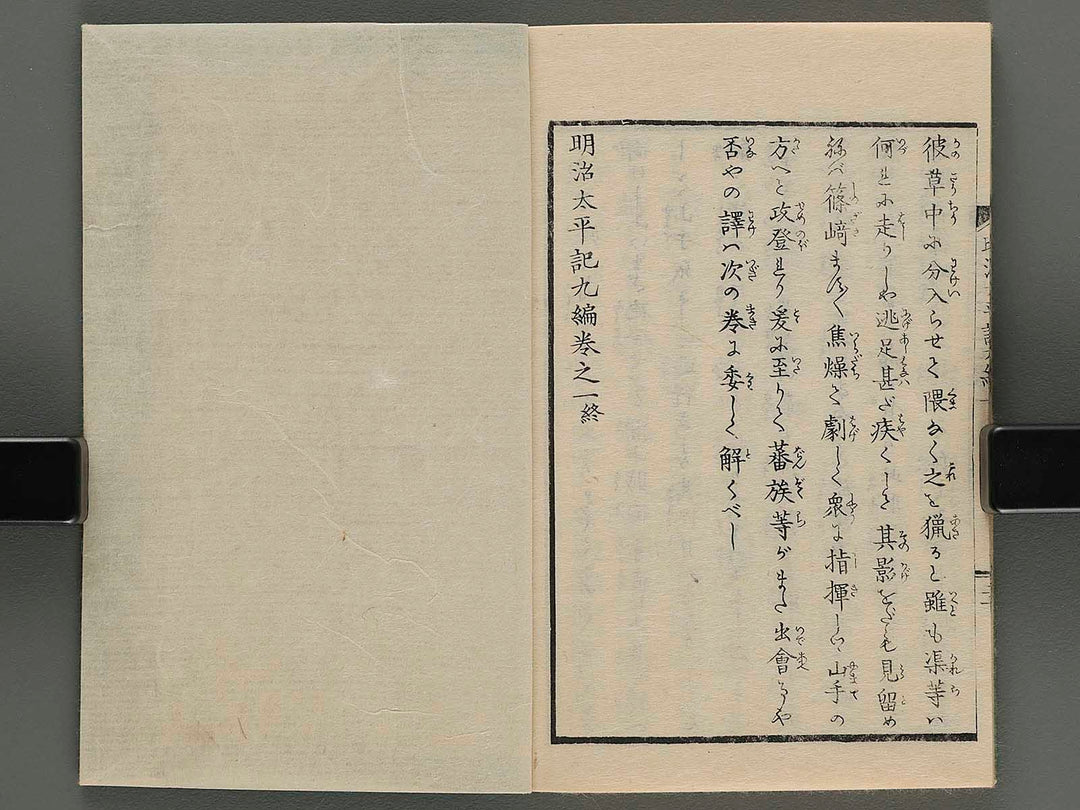 彼草中に分入らせて隈なく之を猟ると雖も渠等は
何れに走りしや逃足甚だ疾くして其影をだも見留め
ねば篠﨑ますます焦燥て劇しく衆に指揮しつつ山手の
方へと攻登れり爰に至りて蕃族等がまた出會ふや
否やの譯は次の巻に委しく解くべし
明治太平記九編巻之一終